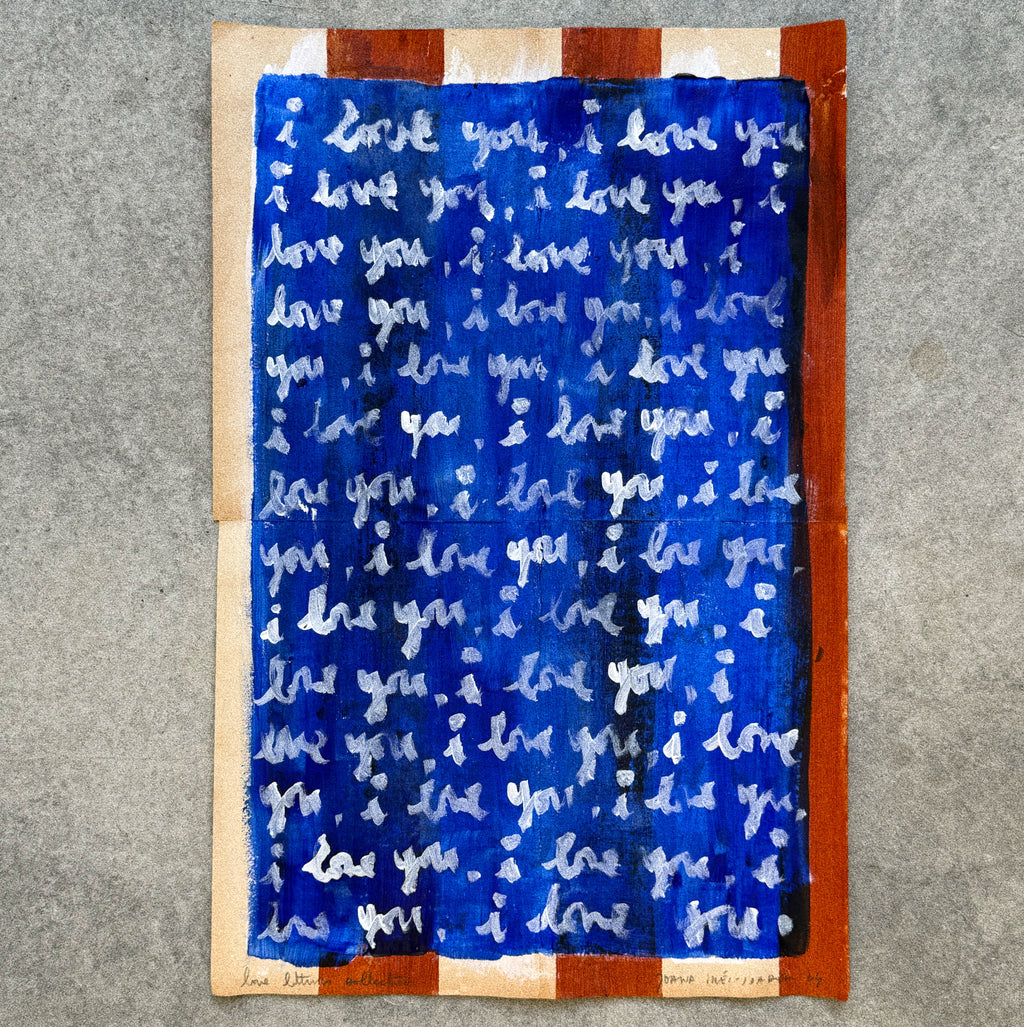 i love you, i love you
i love you, i love you, i
love you, i love you, i
love you, i love you, i love
you, i love you, i love you
i love you, i love you, i
love you, i love you, i love
you, i love you, i love you
i love you, i love you, i
love you, i love you, i
love you, i love you, i love
you, i love you, i love you,
i love you, i love you, i
love you, i love you.
love letters collection